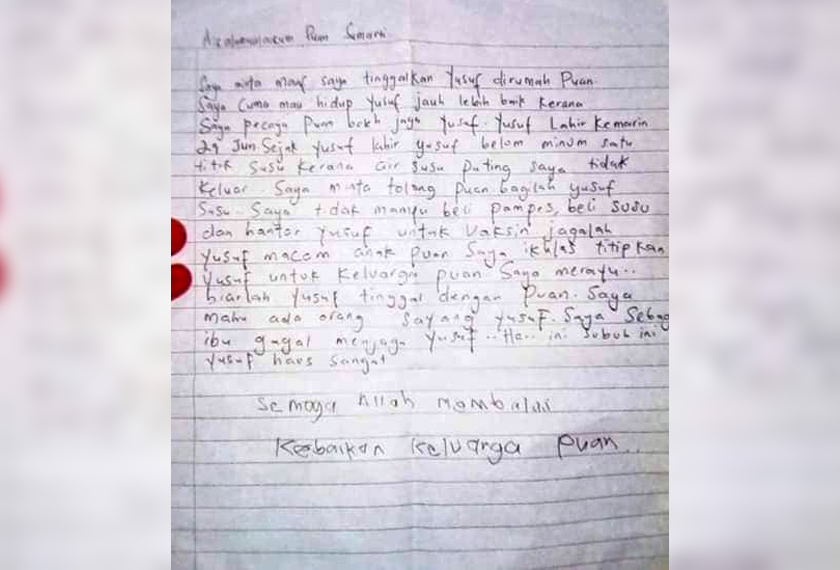 Assalamualaikum Puan
Saya minta maaf saya tinggalkan Yusuf dirumah Puan
Saya Cuma mau hidup Yusuf jauh lebih baik Kerana
Saya percaya Puan boleh jaga Yusuf. Yusuf Lahir Kemarin
29 Jun Sejak Yusuf lahir yusuf belom minum satu
titik susu Kerana air susu puting saya tidak
Keluar Saya minta tolong puan bagilah yusuf
Susu. Saya tidak mampu beli pampes, beli susu
dan hantar Yusuf untuk Vaksin jagalah
Yusuf macam anak puan Saya ikhlas titipkan
Yusuf untuk Keluarga puan Saya merayu..
biarlah Yusuf tinggal dengan Puan. Saya
mahu ada orang sayang yusuf. Saya Sebag
ibu gagal menjaga Yusuf.. Hari ini Subuh ini
Yusuf haus Sangat
Semoga Allah mambalas
Kebaikan Keluarga Puan..